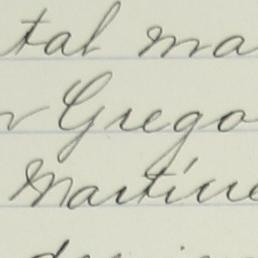 tal ma
r Grego
Martíne